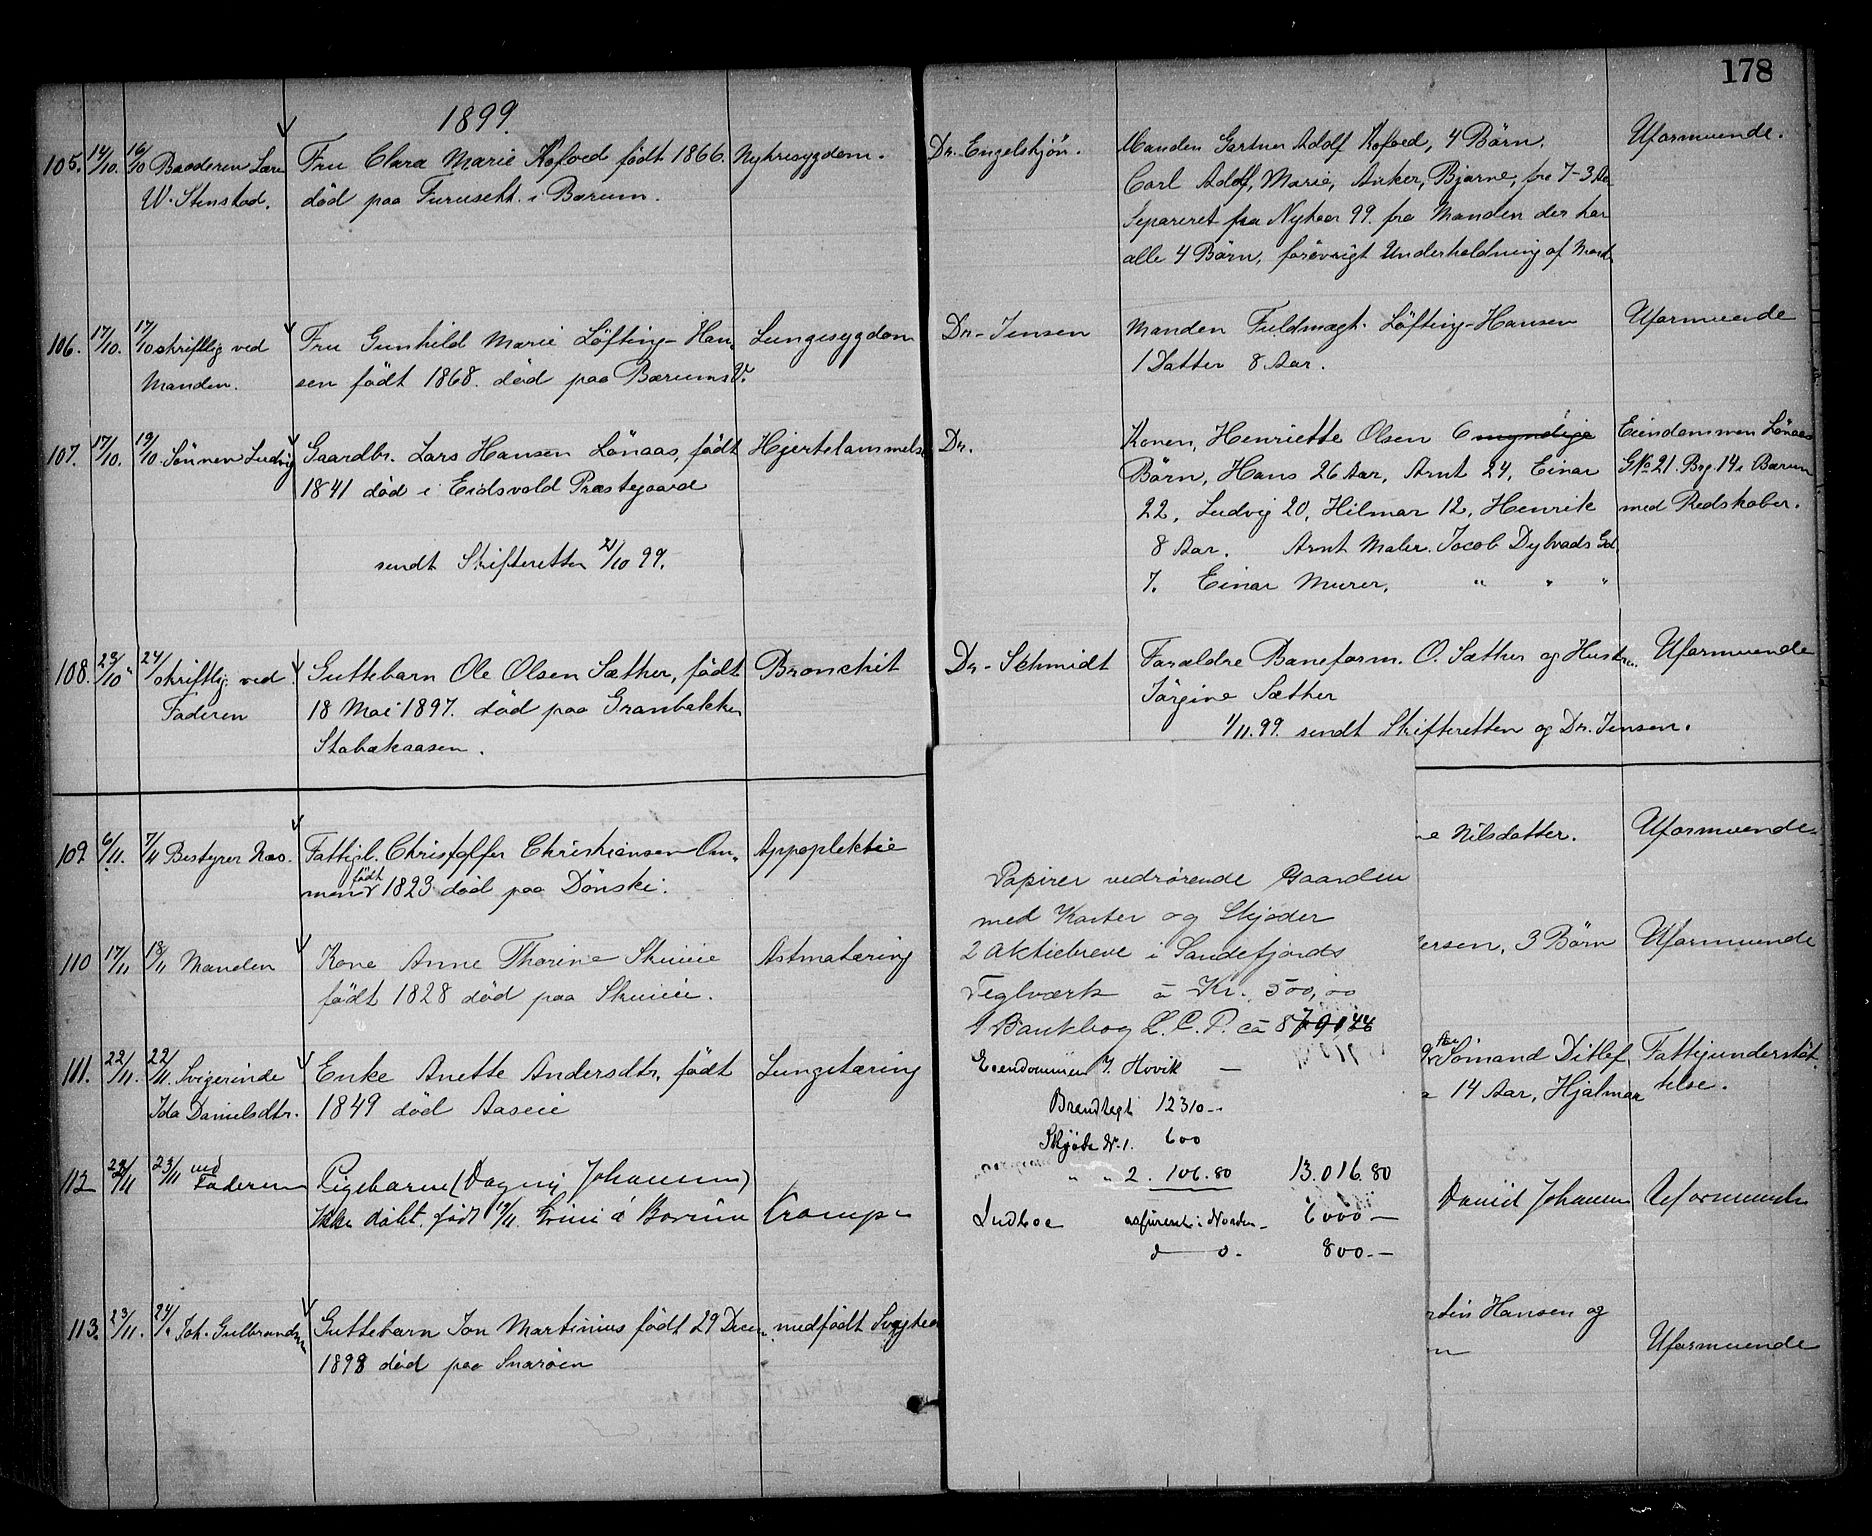 178
1899.
105. 14/10. 16/10 Broderen Lars W. Stenstad. Fru Clara Marie Kofoed født 1866. Nyresygdom. Dr. Engelskjön. Manden Gartner Adolf Kofoed, 4 Börn. Uformuende.
død paa Furuseth i Bærum. Carl Adolf, Marie, Anker, Bjarne, fra 7-3 Aar
Separeret fra Nytaar 99. fra Manden der har
alle 4 Börn, forövrigt Underholdning af Mand
106. 17/10. 17/10 skriftlig ved Fru Gunhild Marie Löfting-Han- Lungesygdom Dr. Jensen Manden Fuldmægt. Löfting-Hansen Uformuende
Manden. sen født 1868. død paa Bærums V. 1 Datter 8 Aar.
107. 17/10. 19/10. Sønnen Ludvig Gaardbr. Lars Hansen Lönaas, født Hjertelammelse Dr. Konen, Henriette Olsen 6 myndige Eiendommen Lönaas
1841 død i Eidsvold Præstegaard Börn, Hans 26 Aar, Arnt 24, Einar G No 21. Brg. 14 i Bærum
22, Ludvig 20, Hilmar 12, Henrik med Redskaber.
sendt Skifteretten 21/10 99. 8 Aar. Arnt Maler. Jacob Dybvads Gd.
7. Einar Murer. " " "
108. 23/10 24/ skriftlig ved Guttebarn Ole Olsen Sæther, født Bronchit Dr. Schmidt Forældre Baneform. O. Sæther og Hustru Uformuende
Faderen 18 Mai 1897. død paa Granbakken Jörgine Sæther
Stabækaasen. 1/11. 99. sendt Skifteretten og Dr. Jensen.
109 6/11. 7/11 Bestyrer Næs. Fattigl. Christoffer Christiansen Om- Appoplektie ne Nilsdatter. Uformuende
men født 1823 død paa Dönski.
110 17/11 18/11 Manden Kone Anne Thorine Skuiie Astmatæring ersen, 3 Börn Uformuende
født 1828 död paa Skuiie.
111. 22/11. 22/11. Svigerinde Enke Anette Andersdtr. født Lungetæring Sömand Ditlef Fattigunderstöt
Ida Danielsdtr. 1849 død Aaseie 14 Aar, Hjalmar telse.
112 22/11 23/11 ved Faderen Pigebarn (Dagny Johansen) David Johansen Uformuende
Ikke döbt. født 19/11. Grini i Bærum Krampe
113. 23/11. 24/ Joh. Gulbrandsen Guttebarn Jon Martinius født 29 Decem medfødt Svaghed Hansen og
1898 død paa Snaröen Uformuende
Papirer vedrørende Gaarden
med Karter og Skjøder
2 Aktiebreve i Sandefjords
Teglværk à Kr. 500,00
1 Bankbog L. C. P. ca
Eiendommen 7. Hovik —
Brandtagt 12310 -
Skjøde Nr. 1. 600
" " 2. 106.80 13.016.80
Indboe assureret i Norden - 6000 —
d o - 800. —